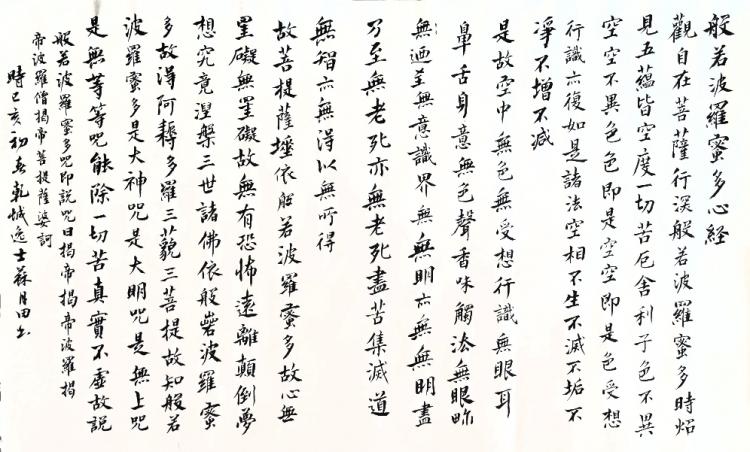 般若波羅蜜多心経
觀自在菩薩行深般若波羅蜜多時炤
見五蘊皆空度一切苦厄舍利子色不異
空空不異色色即是空空即是色受想
行識亦復如是諸法空相不生不滅不垢不
淨不增不減
是故空中無色無受想行識無眼耳
鼻舌身意無色聲香味觸法無眼畍
無迺至無意識界無無明亦無無明盡
乃至無老死亦無老死盡苦集滅道
無智亦無得以無所得
故菩提薩埵依般若波羅蜜多故心無
罣礙無罣礙故無有恐怖遠離顛倒夢
想究竟涅槃三世諸佛依般若波羅蜜
多故得阿耨多羅三藐三菩提故知般若
波羅蜜多是大神咒是大明咒是無上咒
是無等等咒能除一切苦真實不虛故説
般若波羅蜜多咒即説咒曰揭帝揭帝波羅揭
帝波羅僧揭帝菩提薩婆訶
時己亥初春乾城逸士蘇月田書